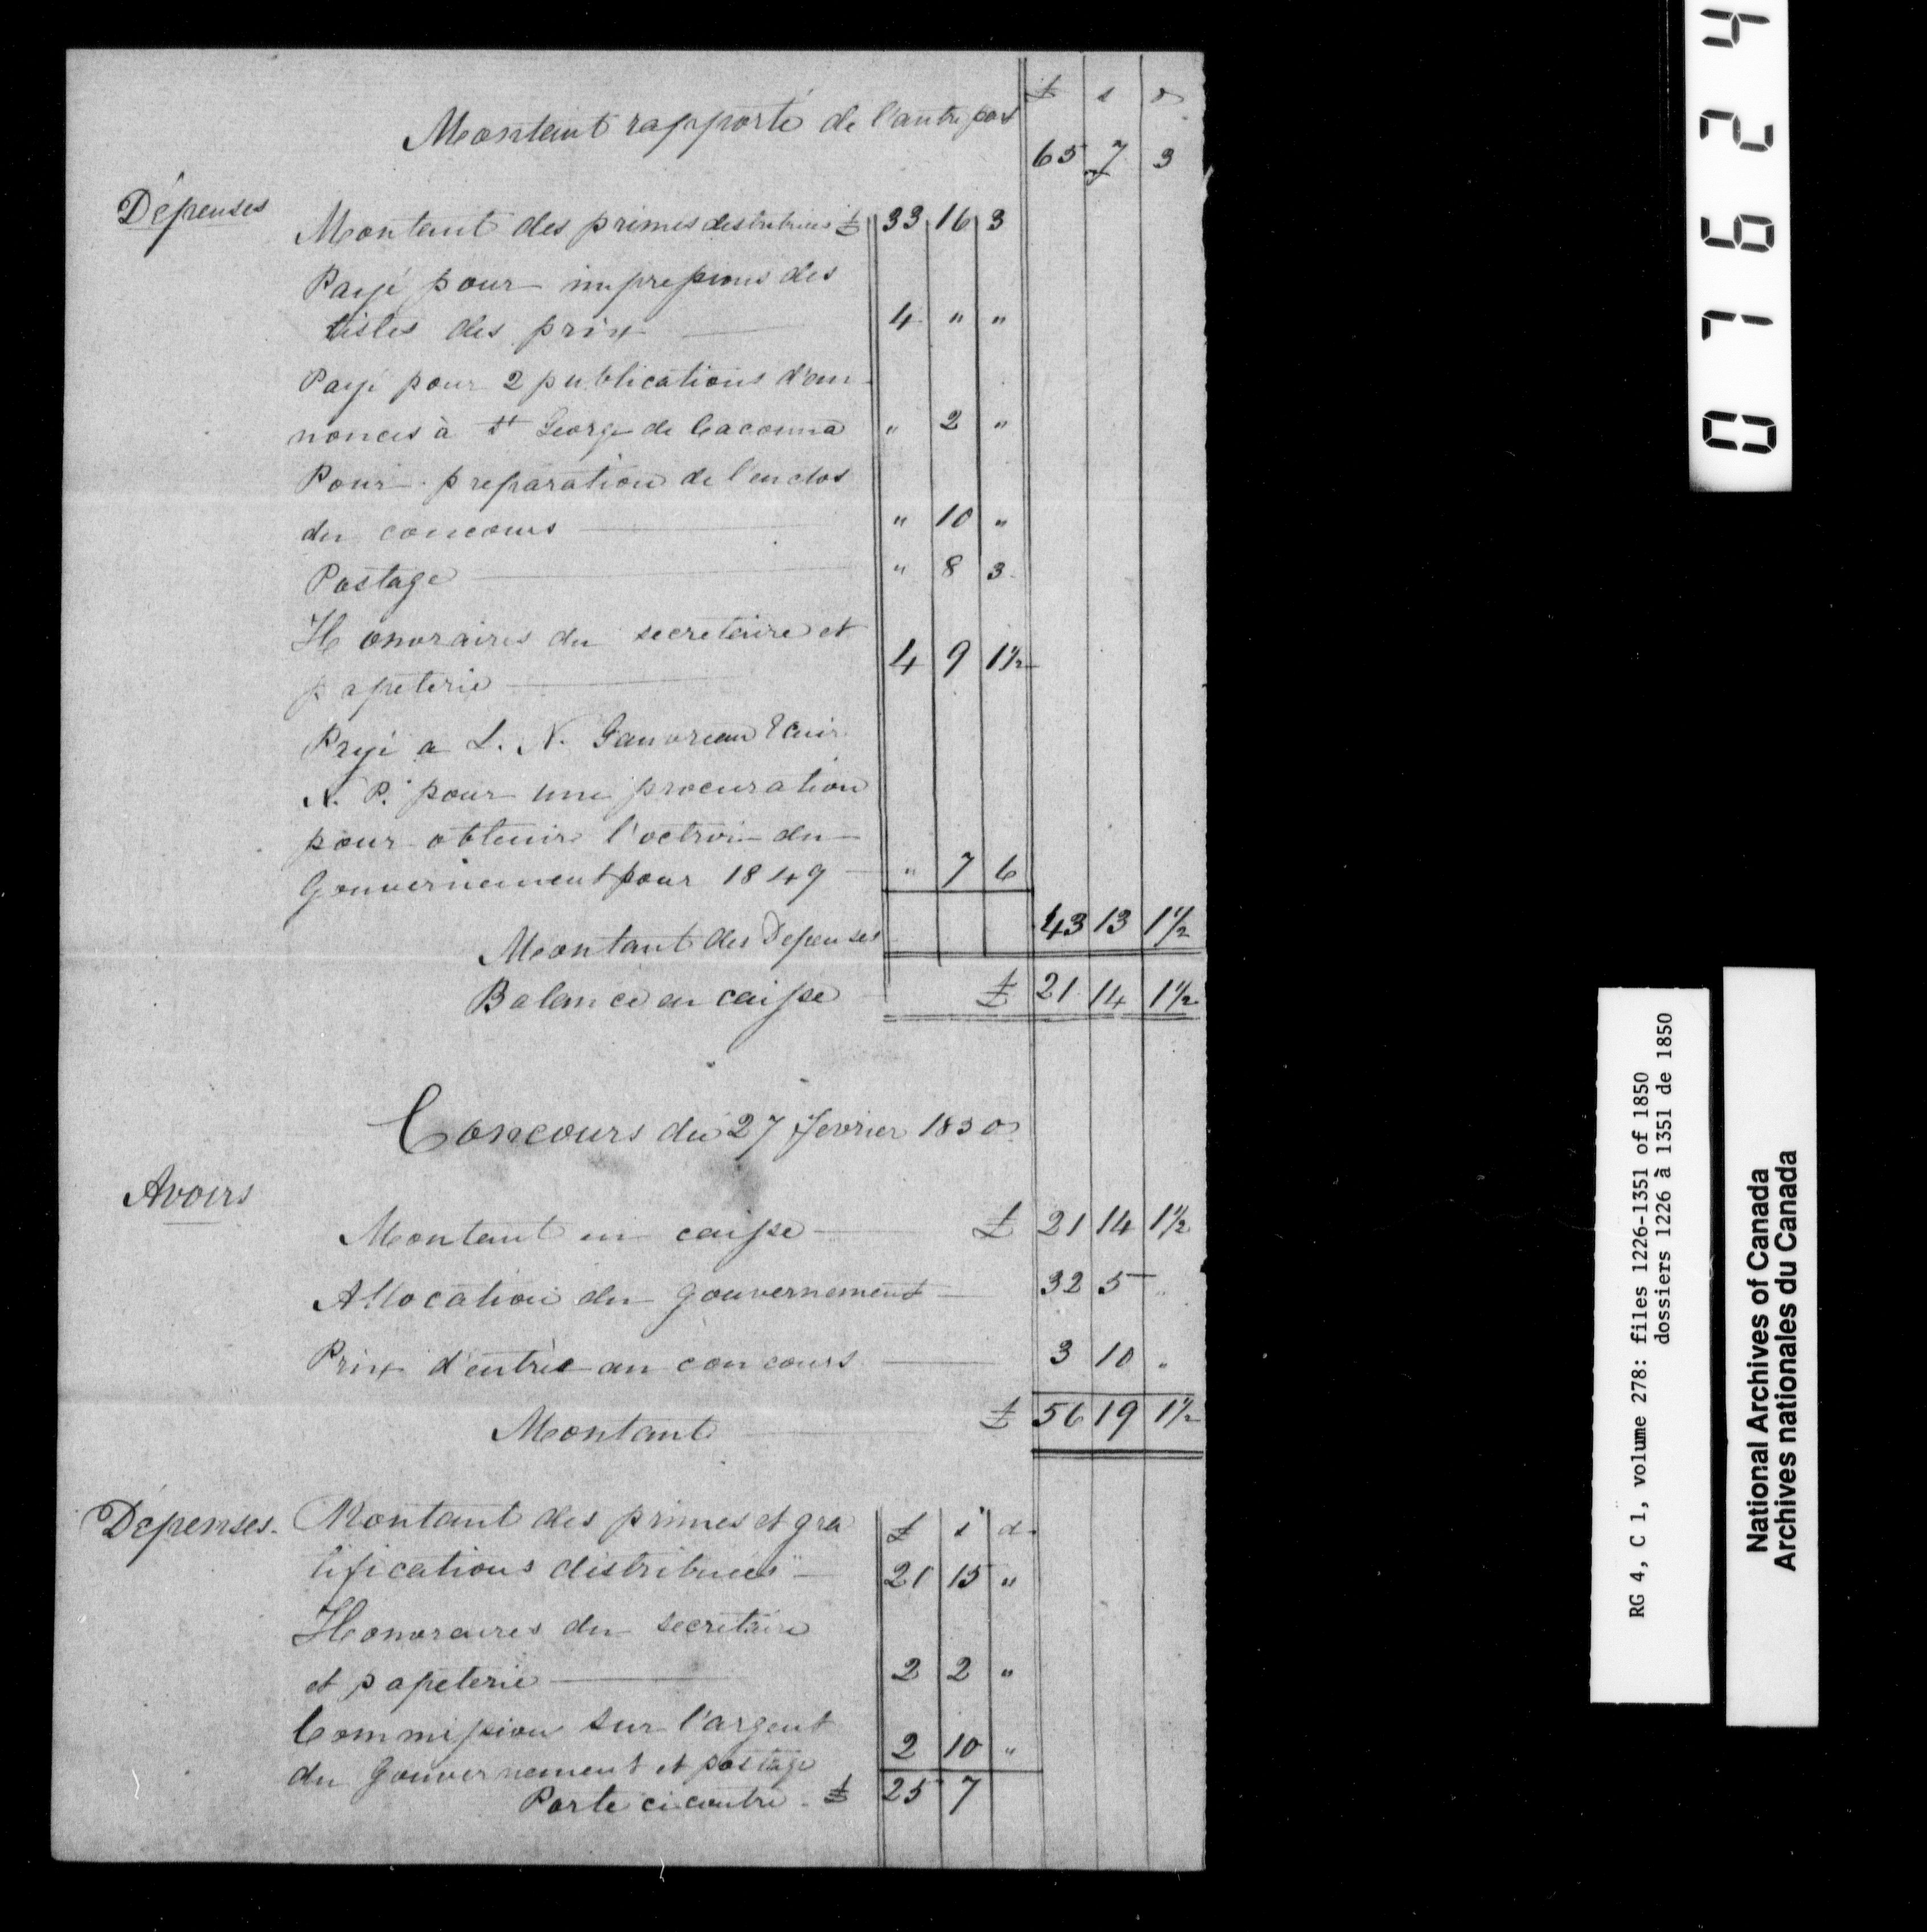 £ s d
Montant rapporté de l'autre part
65 7 3
Dépenses
Montant des primes distribuées £ 33 16 3
Payé pour impressions des
listes des prix 4 " "
Payé pour 2 publications d'an-
nonces à St George de Cacouna " 2 "
Pour préparation de l'enclos
du concours " 10 "
Postage " 8 3
Honoraires du secretaire et
papeterie 4 9 1½
Payé a L. N. Gauvreau Ecuir
N. P. pour une procuration
pour obtenir l'octroi du
Gouvernement pour 1849 " 7 6
Montant des Depenses 43 13 1½
Balance en caisse £ 21 14 1½
Concours du 27 fevrier 1850
Avoirs
Montant en caisse £ 21 14 1½
Allocation du gouvernement 32 5 "
Prix d'entrée au concours 3 10 "
Montant £ 56 19 1½
Dépenses. Montant des primes et gra £ s d
tifications distribuées 21 15 "
Honoraires du secretaire
et papeterie 2 2 "
Commission sur l'argent
du Gouvernement et postage 2 10 "
Porté ci contre £ 25 7
07624
RG 4, C 1, volume 278: files 1226-1351 of 1850
dossiers 1226 à 1351 de 1850
National Archives of Canada
Archives nationales du Canada